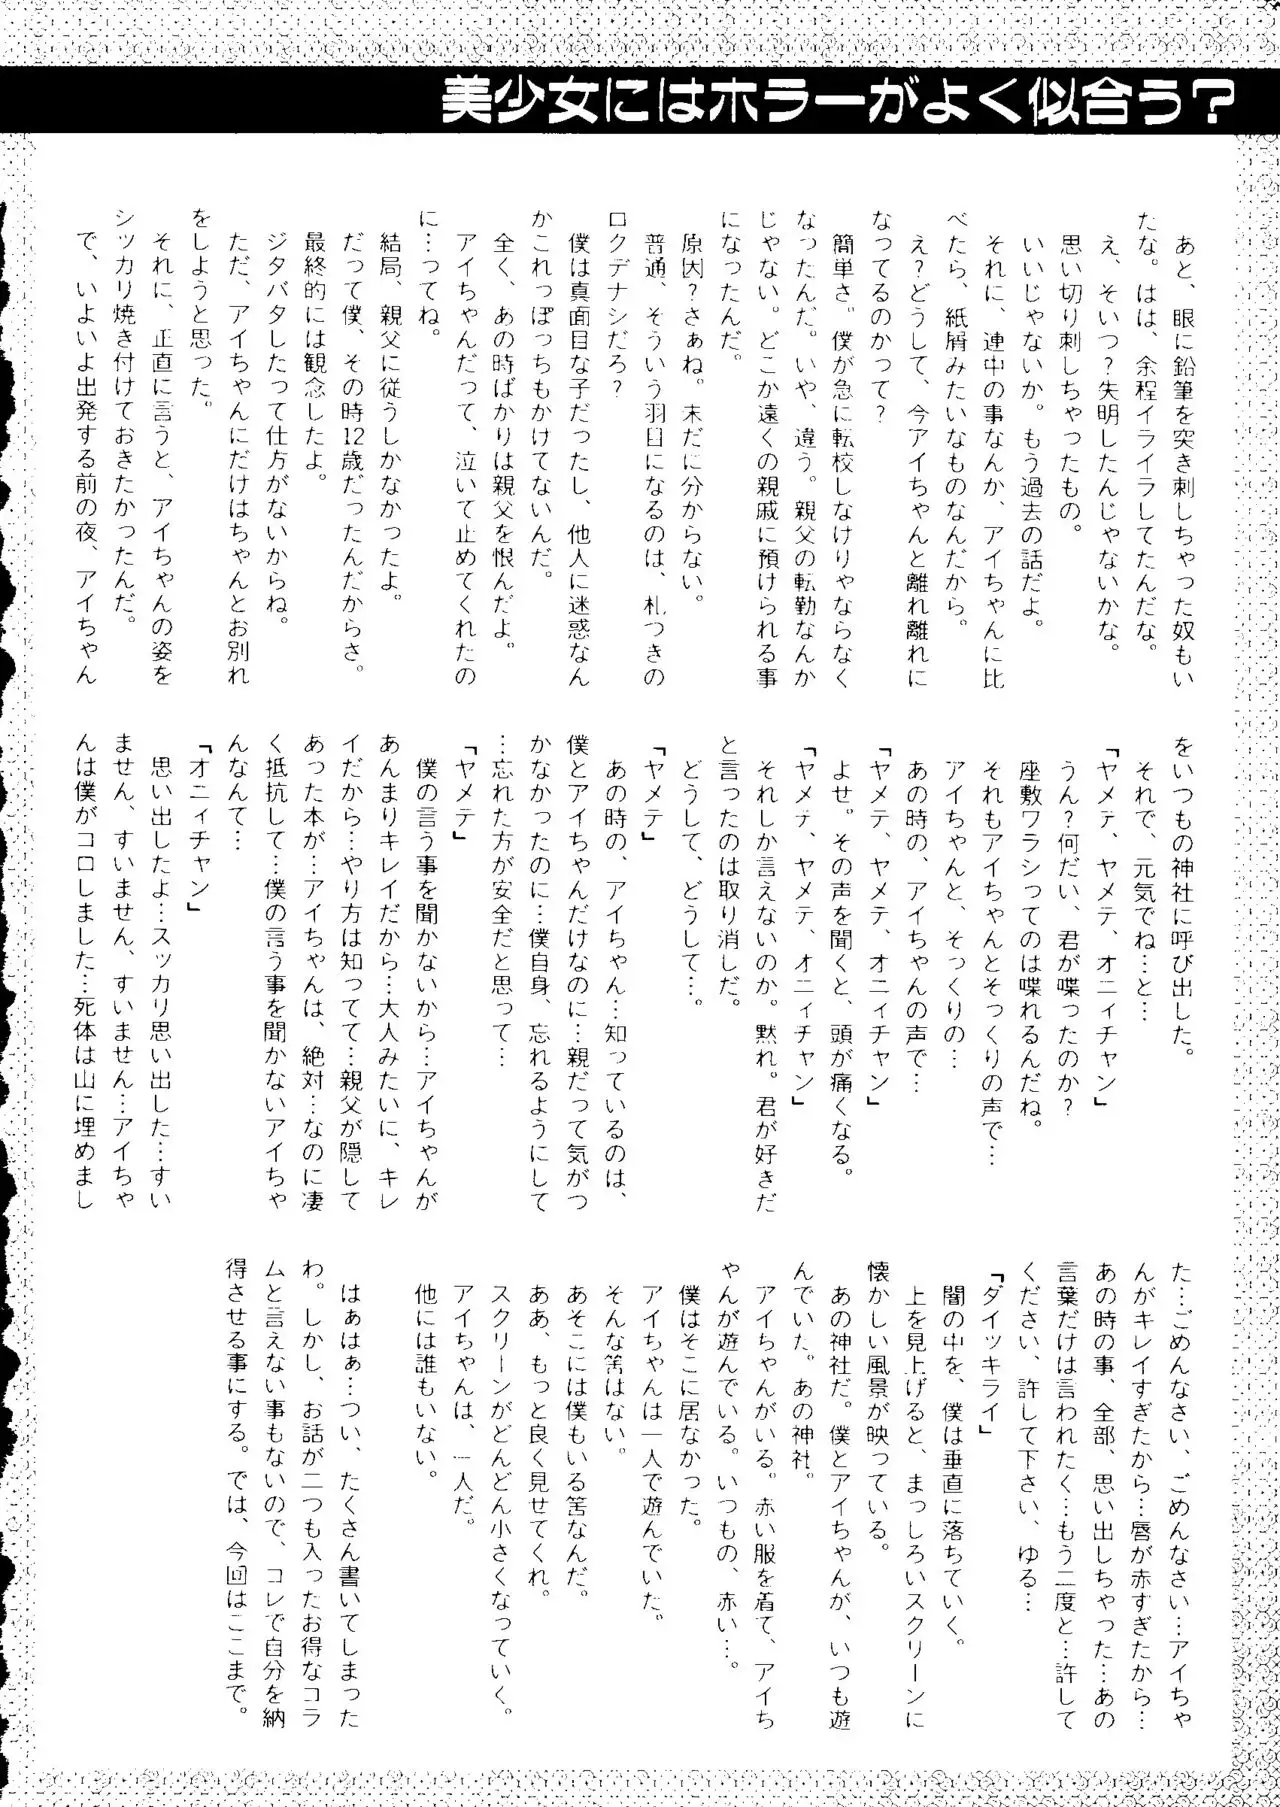 美少女にはホラーがよく似合う?
あと、眼に鉛筆を突き刺しちゃった奴もい
たな。はは、余程イライラしてたんだな。
え、そいつ?失明したんじゃないかな。
思い切り刺しちゃったもの。
いいじゃないか。もう過去の話だよ。
それに、連中の事なんか、アイちゃんに比
べたら、紙屑みたいなものなんだから。
え?どうして、今アイちゃんと離れ離れに
なってるのかって?
簡単さ。僕が急に転校しなけりゃならなく
なったんだ。いや、違う。親父の転勤なんか
じゃない。どこか遠くの親戚に預けられる事
になったんだ。
原因?さぁね。未だに分からない。
普通、そういう羽目になるのは、札つきの
ロクデナシだろ?
僕は真面目な子だったし、他人に迷惑なん
かこれっぽっちもかけてないんだ。
全く、あの時ばかりは親父を恨んだよ。
アイちゃんだって、泣いて止めてくれたの
に…ってね。
結局、親父に従うしかなかったよ。
だって僕、その時12歳だったんだからさ。
最終的には観念したよ。
ジタバタしたって仕方がないからね。
ただ、アイちゃんにだけはちゃんとお別れ
をしようと思った。
それに、正直に言うと、アイちゃんの姿を
シッカリ焼き付けておきたかったんだ。
で、いよいよ出発する前の夜、アイちゃん
をいつもの神社に呼び出した。
それで、元気でね…と…
「ヤメテ、ヤメテ、オニィチャン」
うん?何だい、君が喋ったのか?
座敷ワラシってのは喋れるんだね。
それもアイちゃんとそっくりの声で…
アイちゃんと、そっくりの…
あの時の、アイちゃんの声で…
「ヤメテ、ヤメテ、オニィチャン」
よせ。その声を聞くと、頭が痛くなる。
「ヤメテ、ヤメテ、オニィチャン」
それしか言えないのか。黙れ。君が好きだ
と言ったのは取り消しだ。
どうして、どうして…。
「ヤメテ」
あの時の、アイちゃん…知っているのは、
僕とアイちゃんだけなのに…親だって気がつ
かなかったのに…僕自身、忘れるようにして
…忘れた方が安全だと思って…
「ヤメテ」
僕の言う事を聞かないから…アイちゃんが
あんまりキレイだから…大人みたいに、キレ
イだから…やり方は知ってて…親父が隠して
あった本が…アイちゃんは、絶対…なのに凄
く抵抗して…僕の言う事を聞かないアイちゃ
んなんて…
「オニィチャン」
思い出したよ…スッカリ思い出した…すい
ません、すいません、すいません…アイちゃ
んは僕がコロしました…死体は山に埋めまし
た…ごめんなさい、ごめんなさい…アイちゃ
んがキレイすぎたから…唇が赤すぎたから…
あの時の事、全部、思い出しちゃった…あの
言葉だけは言われたく…もう二度と…許して
ください、許して下さい、ゆる…
「ダイッキライ」
闇の中を、僕は垂直に落ちていく。
上を見上げると、まっしろいスクリーンに
懐かしい風景が映っている。
あの神社だ。僕とアイちゃんが、いつも遊
んでいた。あの神社。
アイちゃんがいる。赤い服を着て、アイち
ゃんが遊んでいる。いつもの、赤い…。
僕はそこに居なかった。
アイちゃんは一人で遊んでいた。
そんな筈はない。
あそこには僕もいる筈なんだ。
ああ、もっと良く見せてくれ。
スクリーンがどんどん小さくなっていく。
アイちゃんは、一人だ。
他には誰もいない。
はぁはぁ…つい、たくさん書いてしまった
わ。しかし、お話が二つも入ったお得なコラ
ムと言えない事もないので、コレで自分を納
得させる事にする。では、今回はここまで。